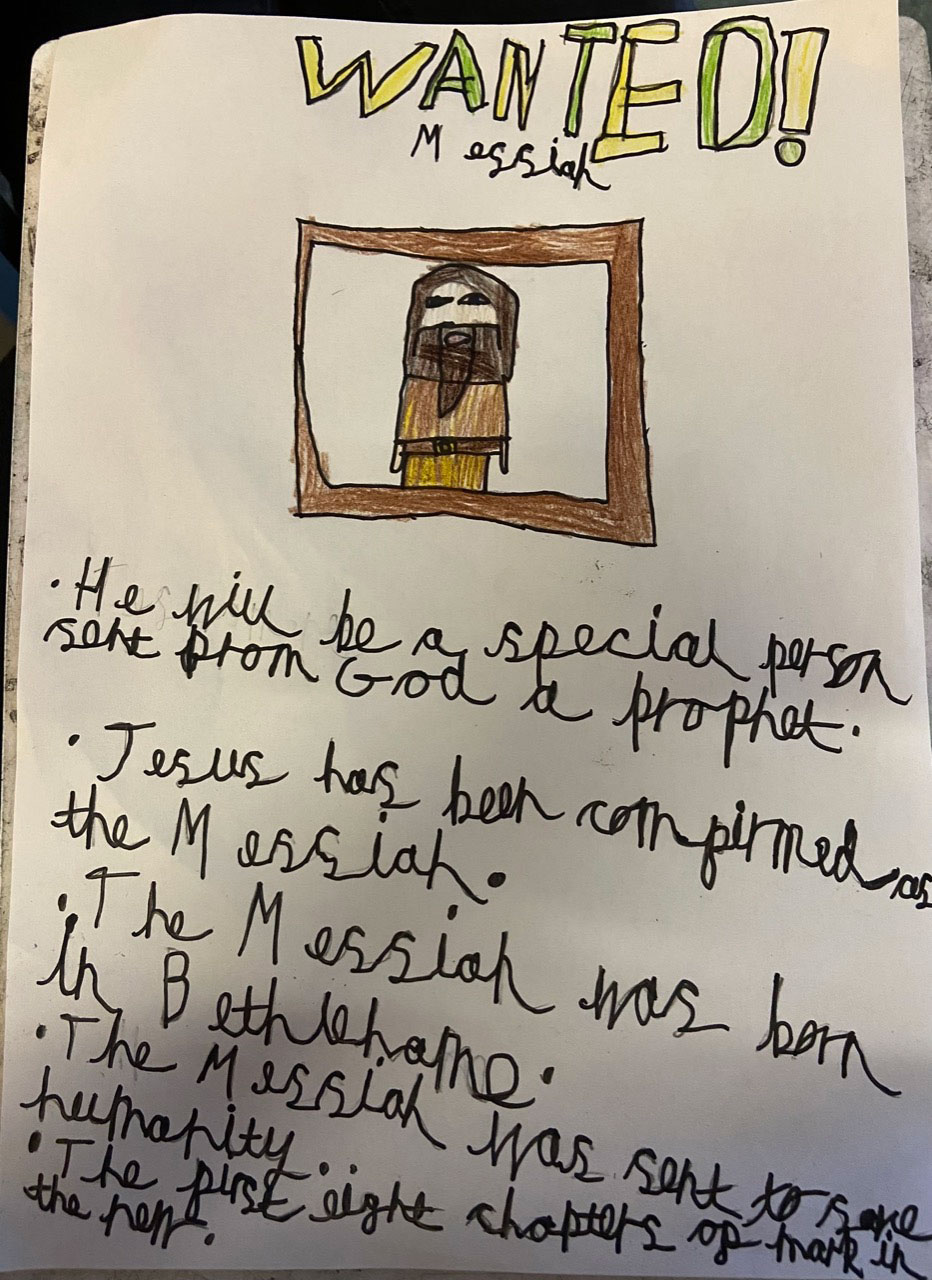 WANTED!
Messiah
• He will be a special person
sent from God a prophet.
• Jesus has been comfirmed as
the Messiah.
• The Messiah was born
in Bethlehame.
• The Messiah was sent to save
humanity..
• The first eight chapters of mark in
the